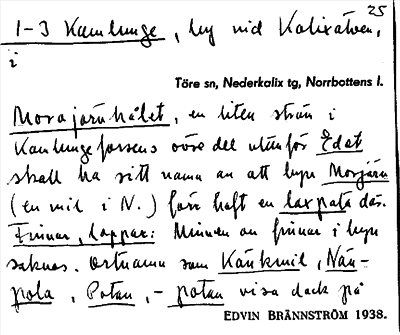 25
1-3 Kamlunge, by vid Kalixälven,
i
Töre sn, Nederkalix tg, Norrbottens l.
Morajärvhålet, en liten strän i
Kamlungeforsens övre del utanför Edet
skall ha sitt namn av att byn Morjärv
(en mil i N.) förr haft en laxpata där.
Finnar, lappar: Minnen om finnar i byn
saknas. Ortnamn som Kankmil, Nän-
pola, Potan, -potan visa dock på
EDVIN BRÄNNSTRÖM 1938.